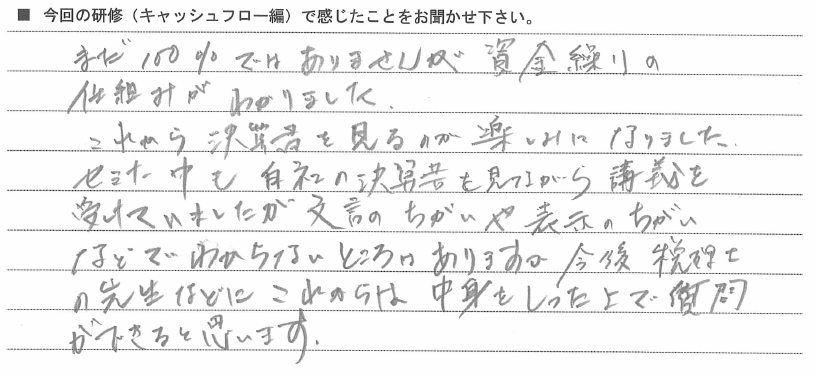 ■ 今回の研修（キャッシュフロー編）で感じたことをお聞かせ下さい。
まだ100%ではありませんが 資金繰りの
仕組みが わかりました。
これから 決算書を見るのが 楽しみに なりました。
セミナー中も 自社の決算書を見ながら 講義を
受けていましたが 文言の ちがいや 表示の ちがい
などで わからないところは ありますが 今後 税理士
の先生などに これからは 中身をしった上で 質問
ができると思います。